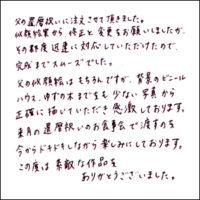 父の還暦祝いに注文させて頂きました。
似顔絵案から、修正と変更をお願いしましたが、
その都度迅速に対応していただけたので、
完成までスムーズでした。
父の似顔絵はもちろんですが、背景のビニール
ハウス、ゆずの木までをも少ない写真から
正確に描いていただき感激しております。
来月の還暦祝いのお食事会で渡すのを
今からドキドキしながら楽しみにしております。
この度は素敵な作品を
ありがとうございました。